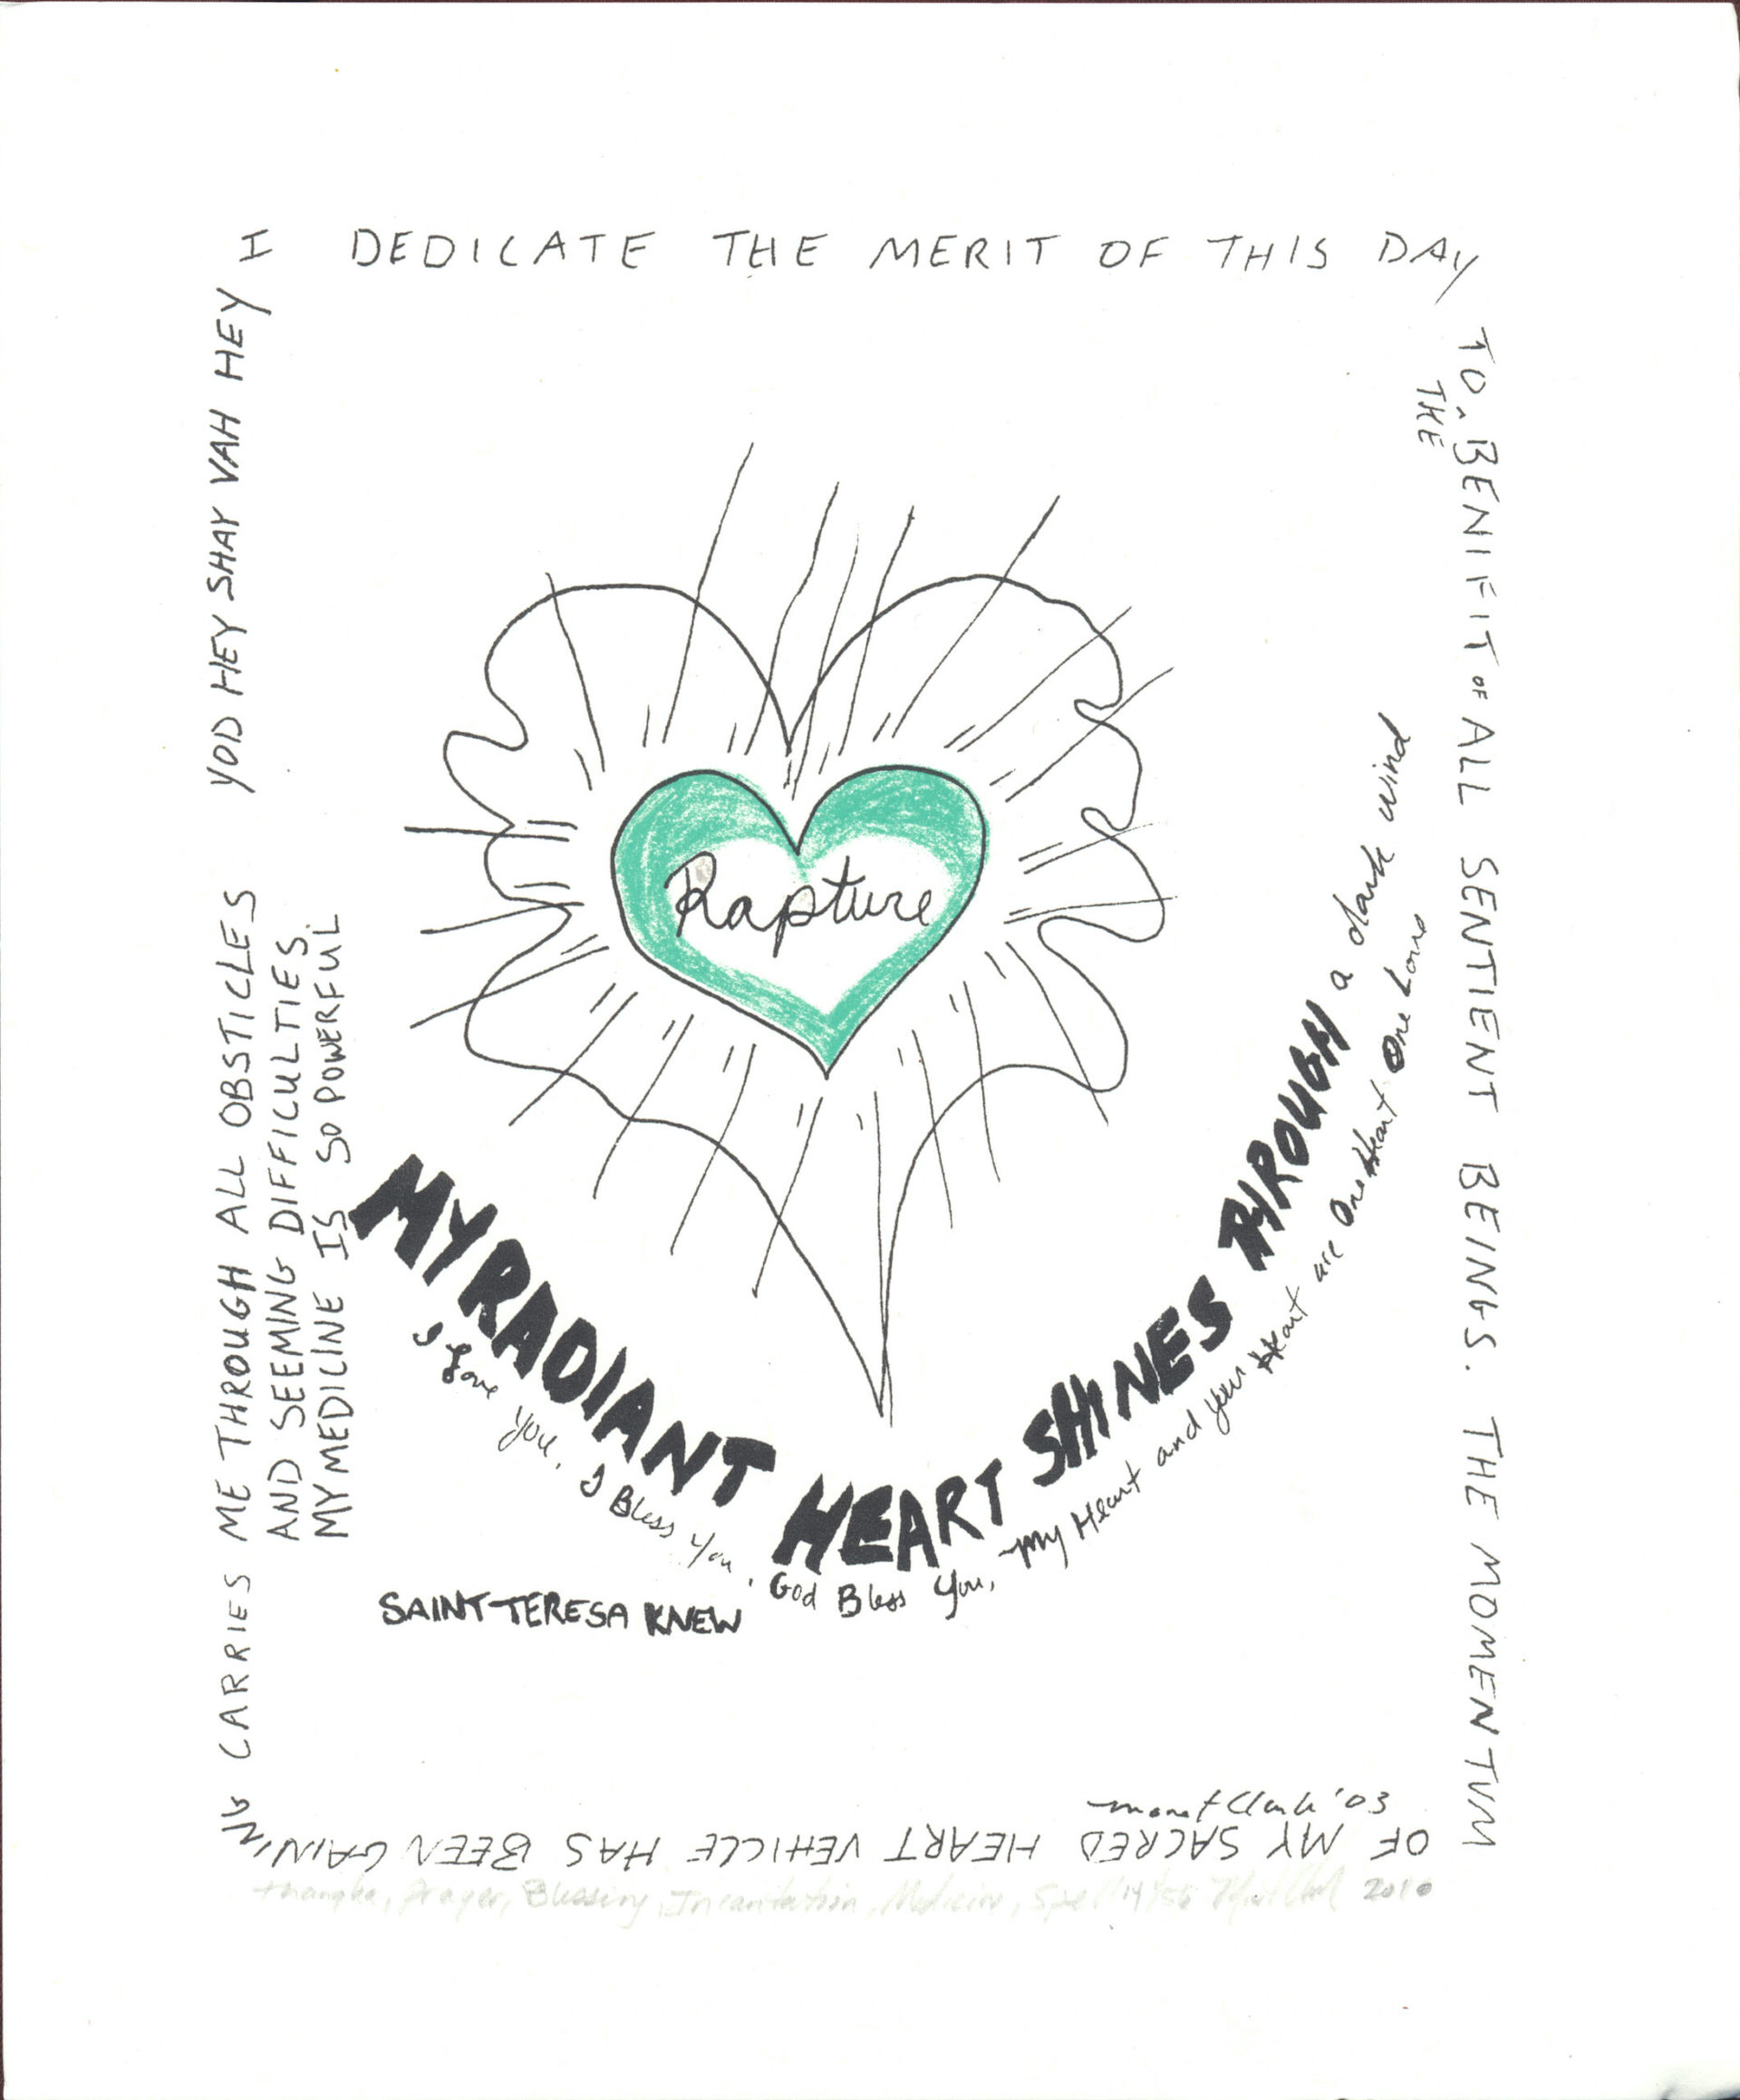 I DEDICATE THE MERIT OF THIS DAY
TO ^ BENIFIT OF ALL SENTIENT BEINGS. THE MOMENTUM
THE
OF MY SACRED HEART VEHICLE HAS BEEN GAINING
CARRIES ME THROUGH ALL OBSTICLES
AND SEEMING DIFFICULTIES.
MY MEDICINE IS SO POWERFUL
YOD HEY SHAY VAH HEY
Rapture
MY RADIANT HEART SHINES THROUGH a dark wind
I Love You, I Bless You, God Bless You, My Heart and your Heart are One Heart One Love
SAINT TERESA KNEW
Monet Clark '03
Thangka, Prayer, Blessing, Incantation, Medicine, Spell 14/50 2010